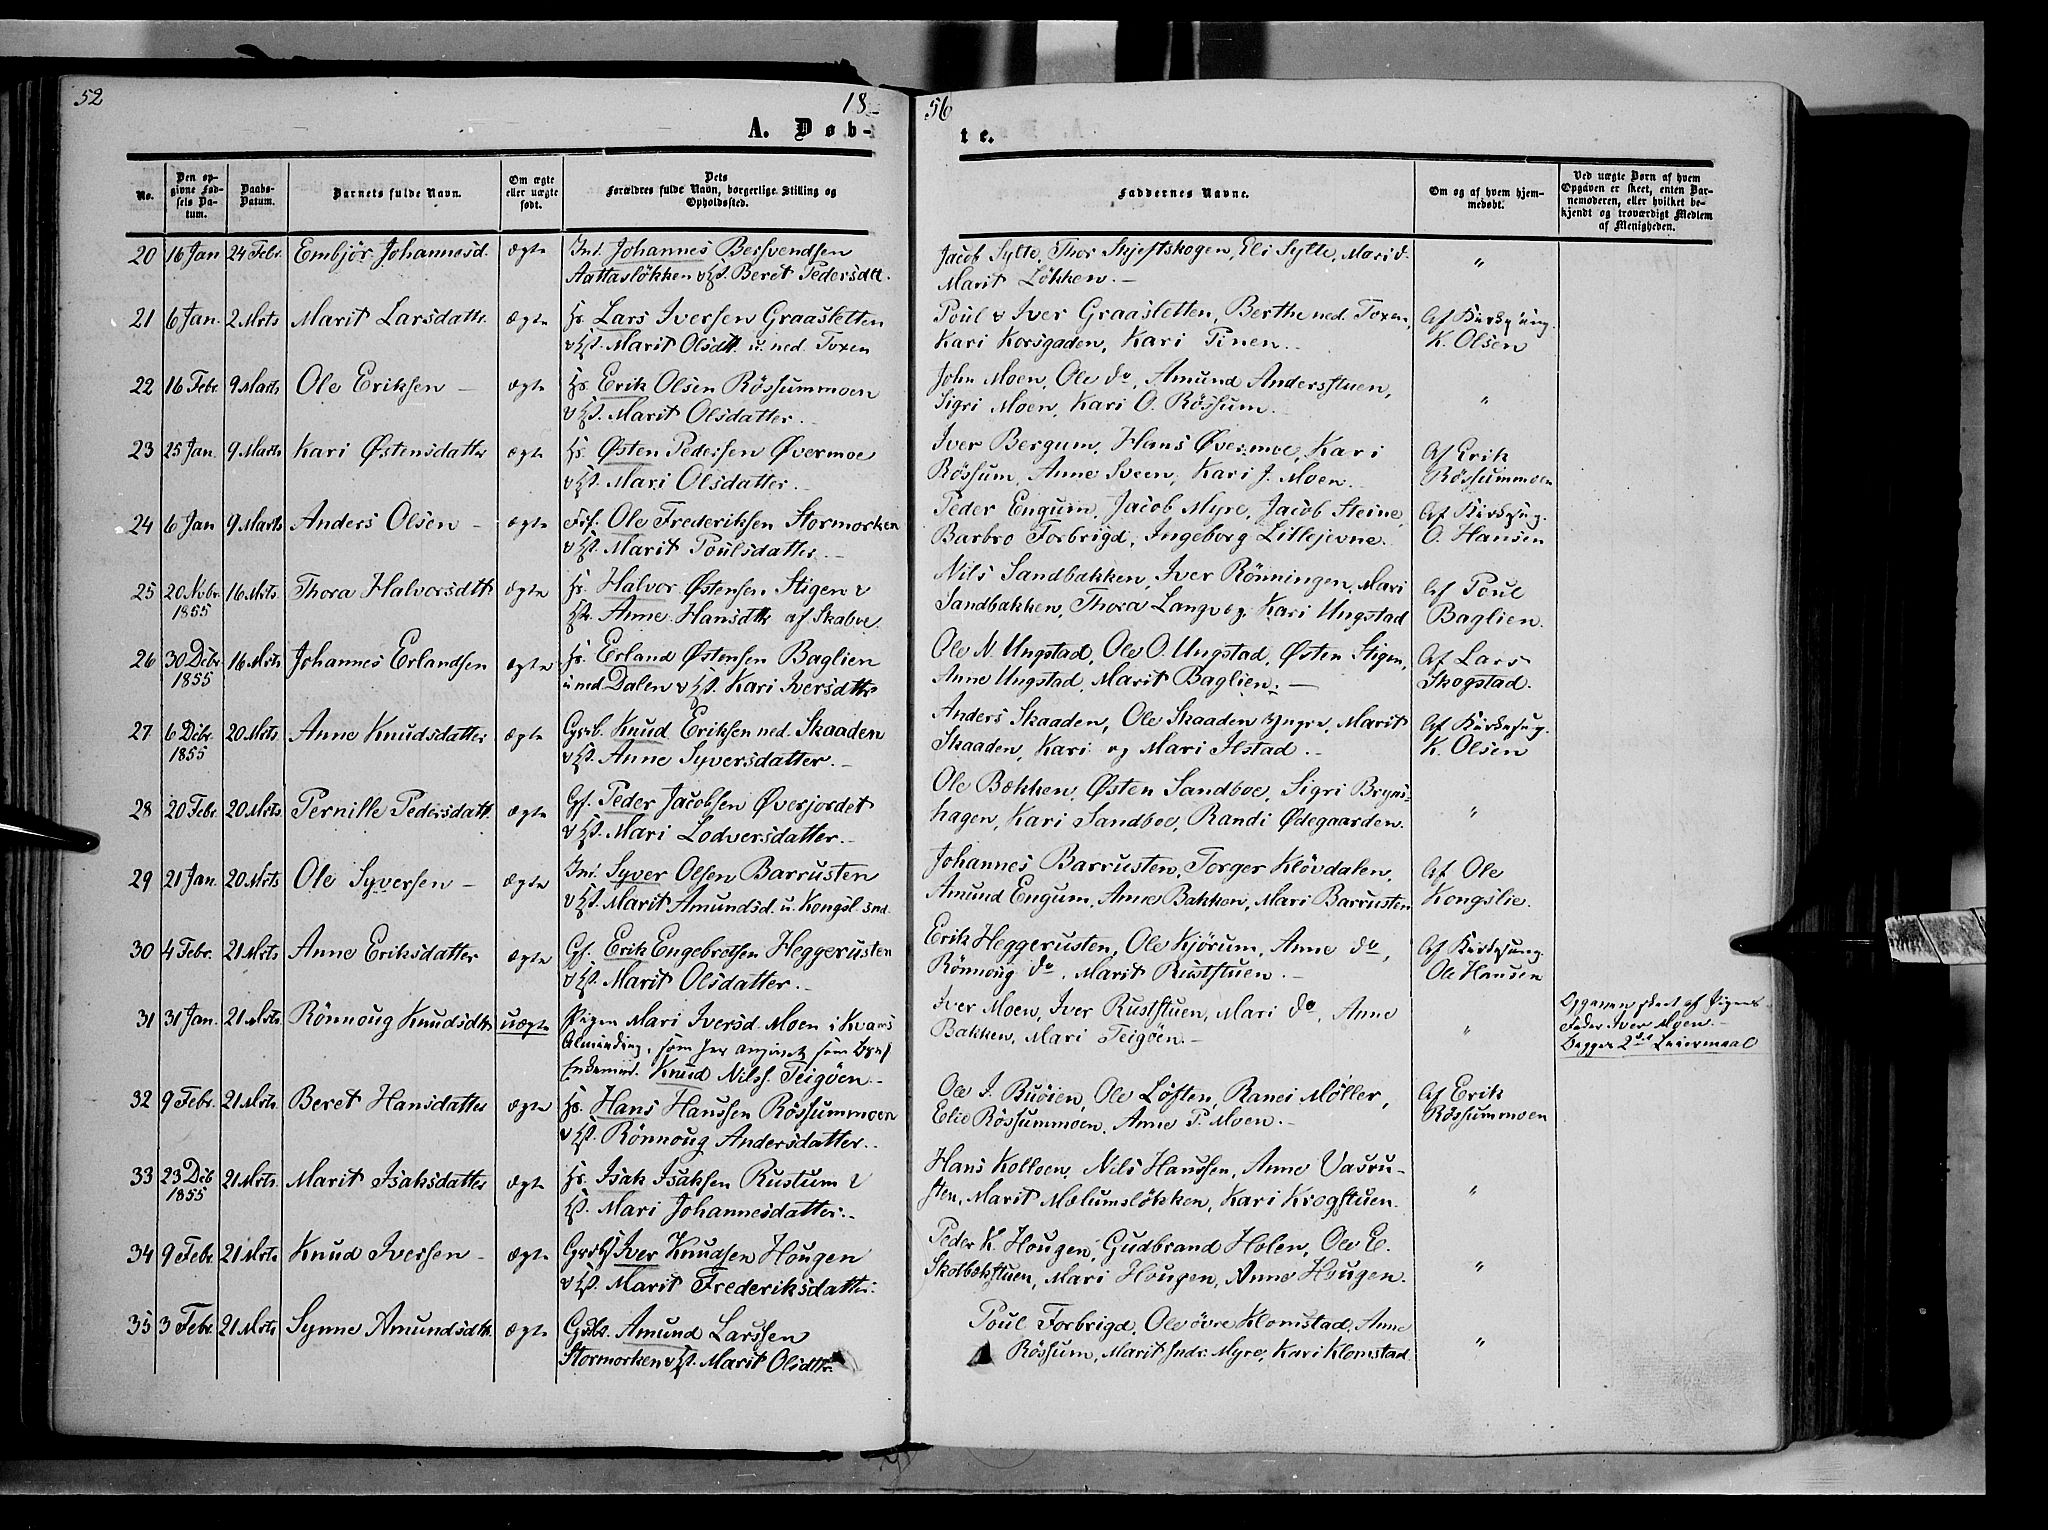 52
18
56
A. Døb-
te.
No.
Den op-
givne Fød-
sels Da-
tum.
Daabs-
Datum.
Barnets fulde Navn.
Om ægte
eller uægte
født.
Dets
Forældres fulde Navn, borgerlige Stilling og
Opholdssted.
Faddernes Navne.
Om og af hvem hjem-
medøbt.
Ved uægte Børn af hvem
Opgaven er skeet, enten Bar-
nemoderen, eller hvilket be-
kjendt og troværdigt Medlem
af Menigheden.
20 16 Jan 24 Febr. Embjör Johannesd. ægte Ind. Johannes Bersvendsen
Aattasløkken v Hst. Beret Pedersdtt.
Jacob Sylte, Thor Skjeftskogen, Eli Sylte, Mari do
Marit Løkken.
"
21 6 Jan. 2 Mrts Marit Larsdattr. ægte Hs. Lars Iversen Graasletten
v Hst. Marit Olsdtt. u. ned. Toxen
Poul & Iver Graasletten, Berthe ned. Toxen,
Kari Korsgaden, Kari Pinen.
Af Kirkesang.
K. Olsen
22 16 Febr. 9 Marts Ole Eriksen ægte Hs. Erik Olsen Rössummoen
v Hst. Marit Olsdatter.
John Moen, Ole do, Amund Andersstuen,
Sigri Moen, Kari O. Rössum.
"
23 25 Jan. 9 Marts Kari Østensdatter ægte Hs. Østen Pedersen Øvermoe
v Hst. Mari Olsdatter.
Iver Bergum, Hans Øvermoe, Kari
Rössum, Anne Sveen, Kari J. Moen.
Af Erik
Rössummoen
24 6 Jan 9 Marts Anders Olsen ægte Ole Frederiksen Stormorken
v Hst. Marit Poulsdatter.
Peder Engum, Jacob Myre, Jacob Steine,
Barbro Forbrigd, Ingeborg Lillejevne.
Af Kirkesang.
O. Hansen
25 20 Nvbr. 1855 16 Mrts. Thora Halvorsdtt. ægte Hs. Halvor Østensen Stigen v
Hst. Anne Hansdtr. af Skabve.
Nils Sandbakken, Iver Rönningen, Mari
Sandbakken, Thora Langvog, Kari Ungstad
Af Poul
Baglien.
26 30 Debr. 1855 16 Mrts Johannes Erlandsen ægte Hs. Erland Østensen Baglien
u ned. Dalen v Hst. Kari Iversdtter
Ole N. Ungstad, Ole O. Ungstad, Østen Stigen,
Anne Ungstad, Marit Baglien.
Af Lars
Skogstad.
27 6 Debr. 1855 20 Mrts. Anne Knudsdatter ægte Gsrb. Knud Eriksen ned. Skaaden
v Hst. Anne Syversdatter.
Anders Skaaden, Ole Skaaden yngre, Marit
Skaaden, Kari og Mari Ilstad.
Af Kirkesang.
K. Olsen
28 20 Febr. 20 Mrts. Pernille Pedersdatt. ægte Gf. Peder Jacobsen Øverjordet
v Hst. Mari Lodversdatter.
Ole Bækken, Østen Sandboe, Sigri Bryns-
hagen, Kari Sandboe, Randi Ødegaarden.
"
29 21 Jan. 20 Mrts Ole Syversen ægte Ind. Syver Olsen Barrusten
v Hst. Marit Amundsd. u. Kongsl. snd.
Johannes Barrusten, Torger Klövdalen,
Amund Engum, Anne Bakken, Mari Barrusten
Af Ole
Kongslie.
30 4 Febr. 21 Mrts. Anne Eriksdatter ægte Gf. Erik Engebretsen Heggerusten
v Hst. Marit Olsdatter.
Erik Heggerusten, Ole Kjörum, Anne do,
Rönnoug do, Marit Ruststuen.
Af Kirkesang
Ole Hansen
31 31 Jan. 21 Mrts. Rönnoug Knudsdtr. uægte Pigen Mari Iversd. Moen i Kvams
Alminding, som har angivet som Brnf
Knud Nilss. Teigöen.
Iver Moen, Iver Ruststuen, Mari do, Anne
Bakken, Mari Teigöen.
"
Opgaven skeet af Pigens
Fader Iver Moen.
Begges 2det Leiermaal
32 9 Febr. 21 Mrts. Beret Hansdatter ægte Hs. Hans Hanssen Rössummoen
v Hst. Rönnoug Andersdatter.
Ole J. Buöien, Ole Löften, Ranei Møller,
Elie Rössummoen, Anne P. Moen.
Af Erik
Rössummoen
33 23 Dcb 1855 21 Mrts. Marit Isaksdatter ægte Hs. Isak Isaksen Rustum v
Hst. Mari Johannesdatter.
Hans Kolloen, Nils Hanssen, Anne Vasru-
sten, Marit Mælumsløkken, Kari Krogstuen.
"
34 9 Febr. 21 Mrts Knud Iversen ægte Grdbs. Iver Knudsen Hougen
v Hst. Marit Frederiksdatter.
Peder K. Hougen, Gudbrand Holen, Ole E.
Skolbekstuen, Mari Hougen, Anne Hougen.
"
35 3 Febr. 21 Mrts Synne Amundsdtr. ægte Gdbr. Amund Larssen
Stormorken v Hst. Marit Olsdtr.
Poul Forbrigd, Ole övre Klomstad, Anne
Rössum, Marit Myre, Kari Klomstad
"